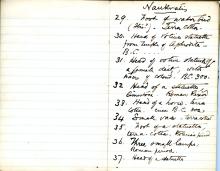 Naukratis
29. Foot of water bird
Terra Cotta.
30. Head of votive statuette
from Temple of Aphrodite.
B.C.
31. Head of votive statuette of
a female deity, with
traces of colour. BC 500.
32. Head of a statuette
Roman Period
33. Head of a horse. Terra
Cotta. B.C.
34. Small vase - terracotta
35. Foot of a statuette,
terra-cotta, Roman period
36. Three small lamps.
Roman period
37. Head of a statuette